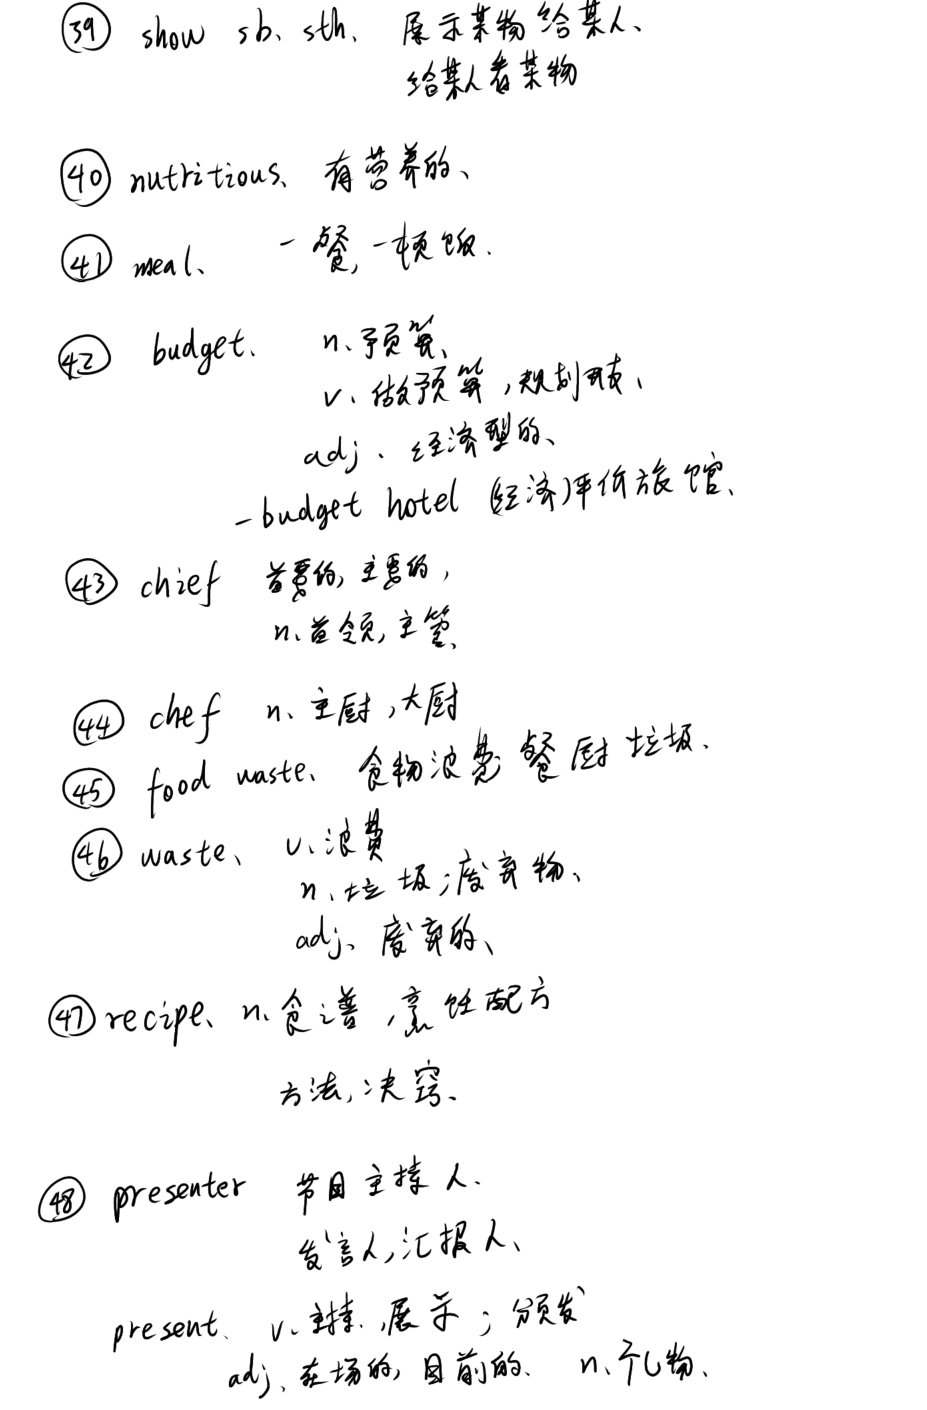 ㊴ show sb、sth、 展示某物给某人、
给某人看某物
㊵ nutritious、 有营养的、
㊶ meal、 一餐, 一顿饭.
㊷ budget、 n、预算、
v、做预算, 规划开支、
adj、经济型的、
-budget hotel (经济)平价旅馆、
㊸ chief 首要的, 主要的,
n、首领, 主管、
㊹ chef n、主厨, 大厨
㊺ food waste、 食物浪费; 餐厨垃圾、
㊻ waste、 v、浪费
n、垃圾; 废弃物、
adj、废弃的、
㊼ recipe、n、食谱, 烹饪配方
方法, 决窍、
㊽ presenter 节目主持人、
发言人, 汇报人、
present、 v、主持、展示; 颁发
adj、在场的, 目前的、 n、礼物、